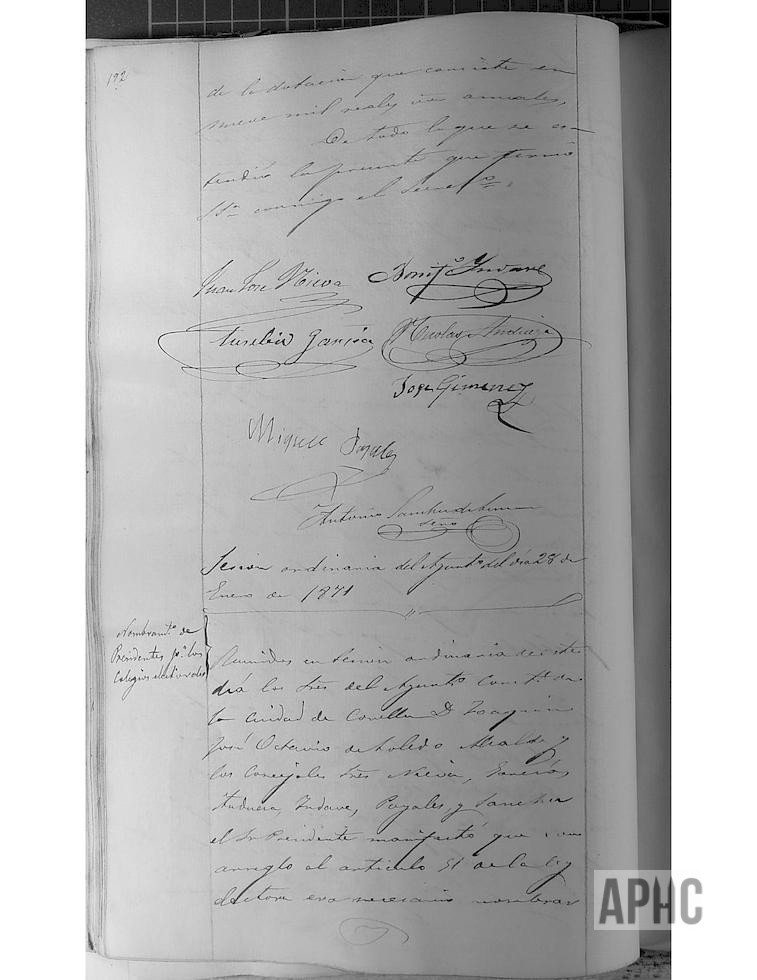 192
de la dotacion que consiste en
nueve mil reales vn anuales,
De todo lo que se es-
tendió la presente que firmó
SSª conmigo el Secretº.
Juan José Nieva
Bonifº Yndave
Eusebio García
Nicolas Andueza
Jose Gimenez
Miguel Payales
Antonio Sanchez
Srio
Sesion ordinaria del Ayuntº del dia 28 de
Enero de 1871
Nombramtº de
Presidentes pª los
Colegios electorales
Reunidos en sesion ordinaria de este
diá los Sres del Ayuntº Constl de
la Ciudad de Corella D. Joaquin
José Octavio de Toledo Alcalde y
los Concejales Sres Nieva, Garcia,
Andueza, Yndave, Payales, y Sanchez
el Sr Presidente manifestó que con
arreglo al articulo 51 de la ley
electoral era necesario nombrar
APHC